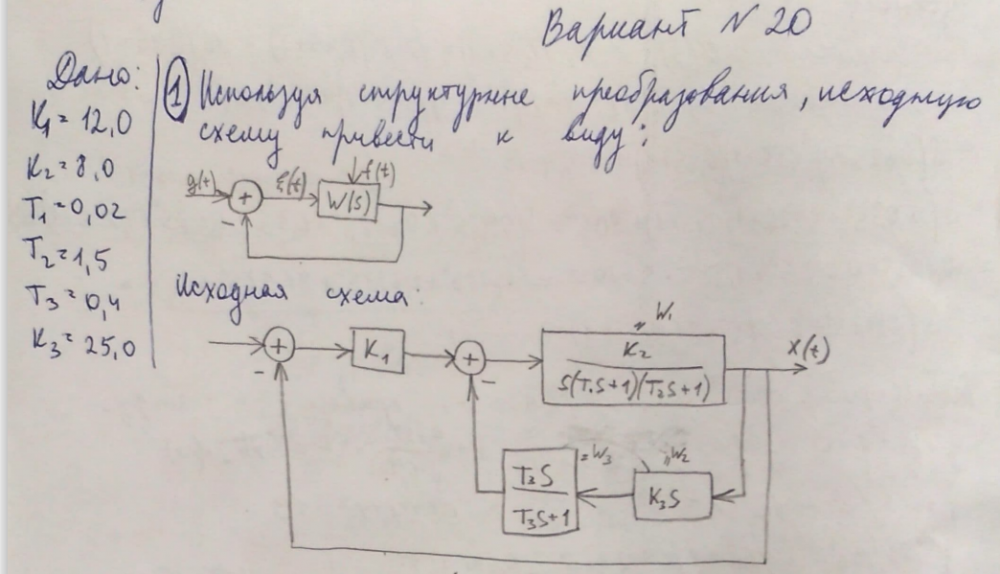 Вариант N 20
Дано:
K1 = 12,0
K2 = 8,0
T1 = 0,02
T2 = 1,5
T3 = 0,4
K3 = 25,0
① Используя структурные преобразования, исходную
схему привести к виду:
g(t)
+
-
ξ(t)
f(t)
W(s)
Исходная схема:
+
-
K1
+
-
W1
K2
S(T1S+1)(T2S+1)
X(t)
T3S
T3S+1
=W3
W2
K3S